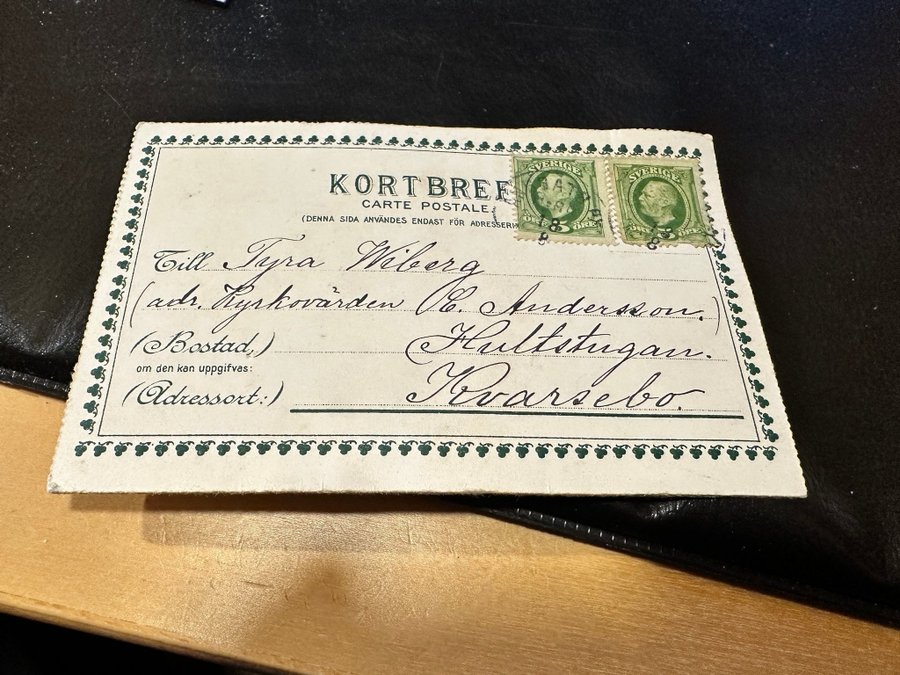 KORTBREF
CARTE POSTALE.
(DENNA SIDA ANVÄNDES ENDAST FÖR ADRESSERIN
SVERIGE
5 ÖRE
SVERIGE
5 ÖRE
18
8
18
8
Till Tyra Wiberg
(adr. Kyrkovärden C. Andersson.)
(Bostad,) Hultstugan.
om den kan uppgifvas:
(Adressort:) Kvarsebo.